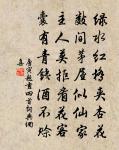 綠水紅橋夾杏花
數間茅屋似仙家
主人莫拒看花客
囊有青錢酒不賒
唐寅題畫四首詞典網